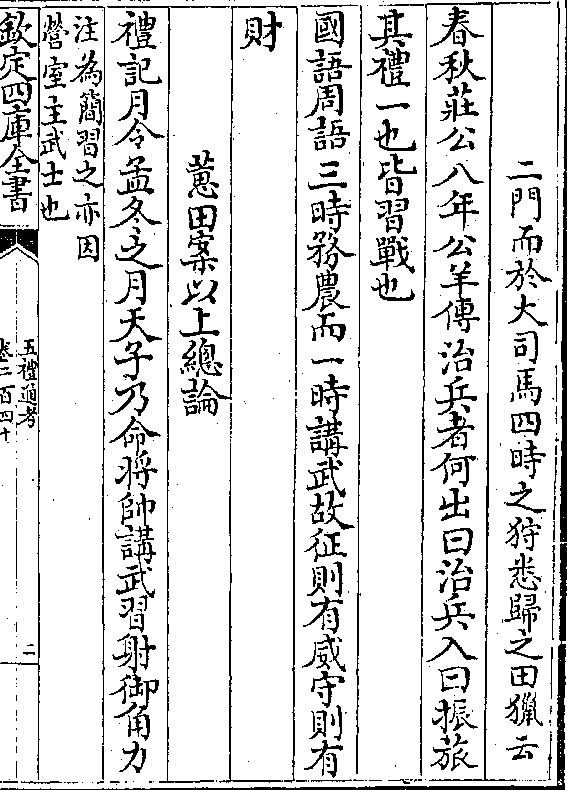 二門而於大司馬四時之狩悉歸之田獵云
春秋莊公八年公羊傳治兵者何出曰治兵入曰振旅
其禮一也皆習戰也
國語周語三時務農而一時講武故征則有威守則有
財
蕙田案以上總論
禮記月令孟冬之月天子乃命將帥講武習射御角力
注為簡習之亦因
營室主武士也
欽定四庫全書
五禮通考
卷二百四十
二